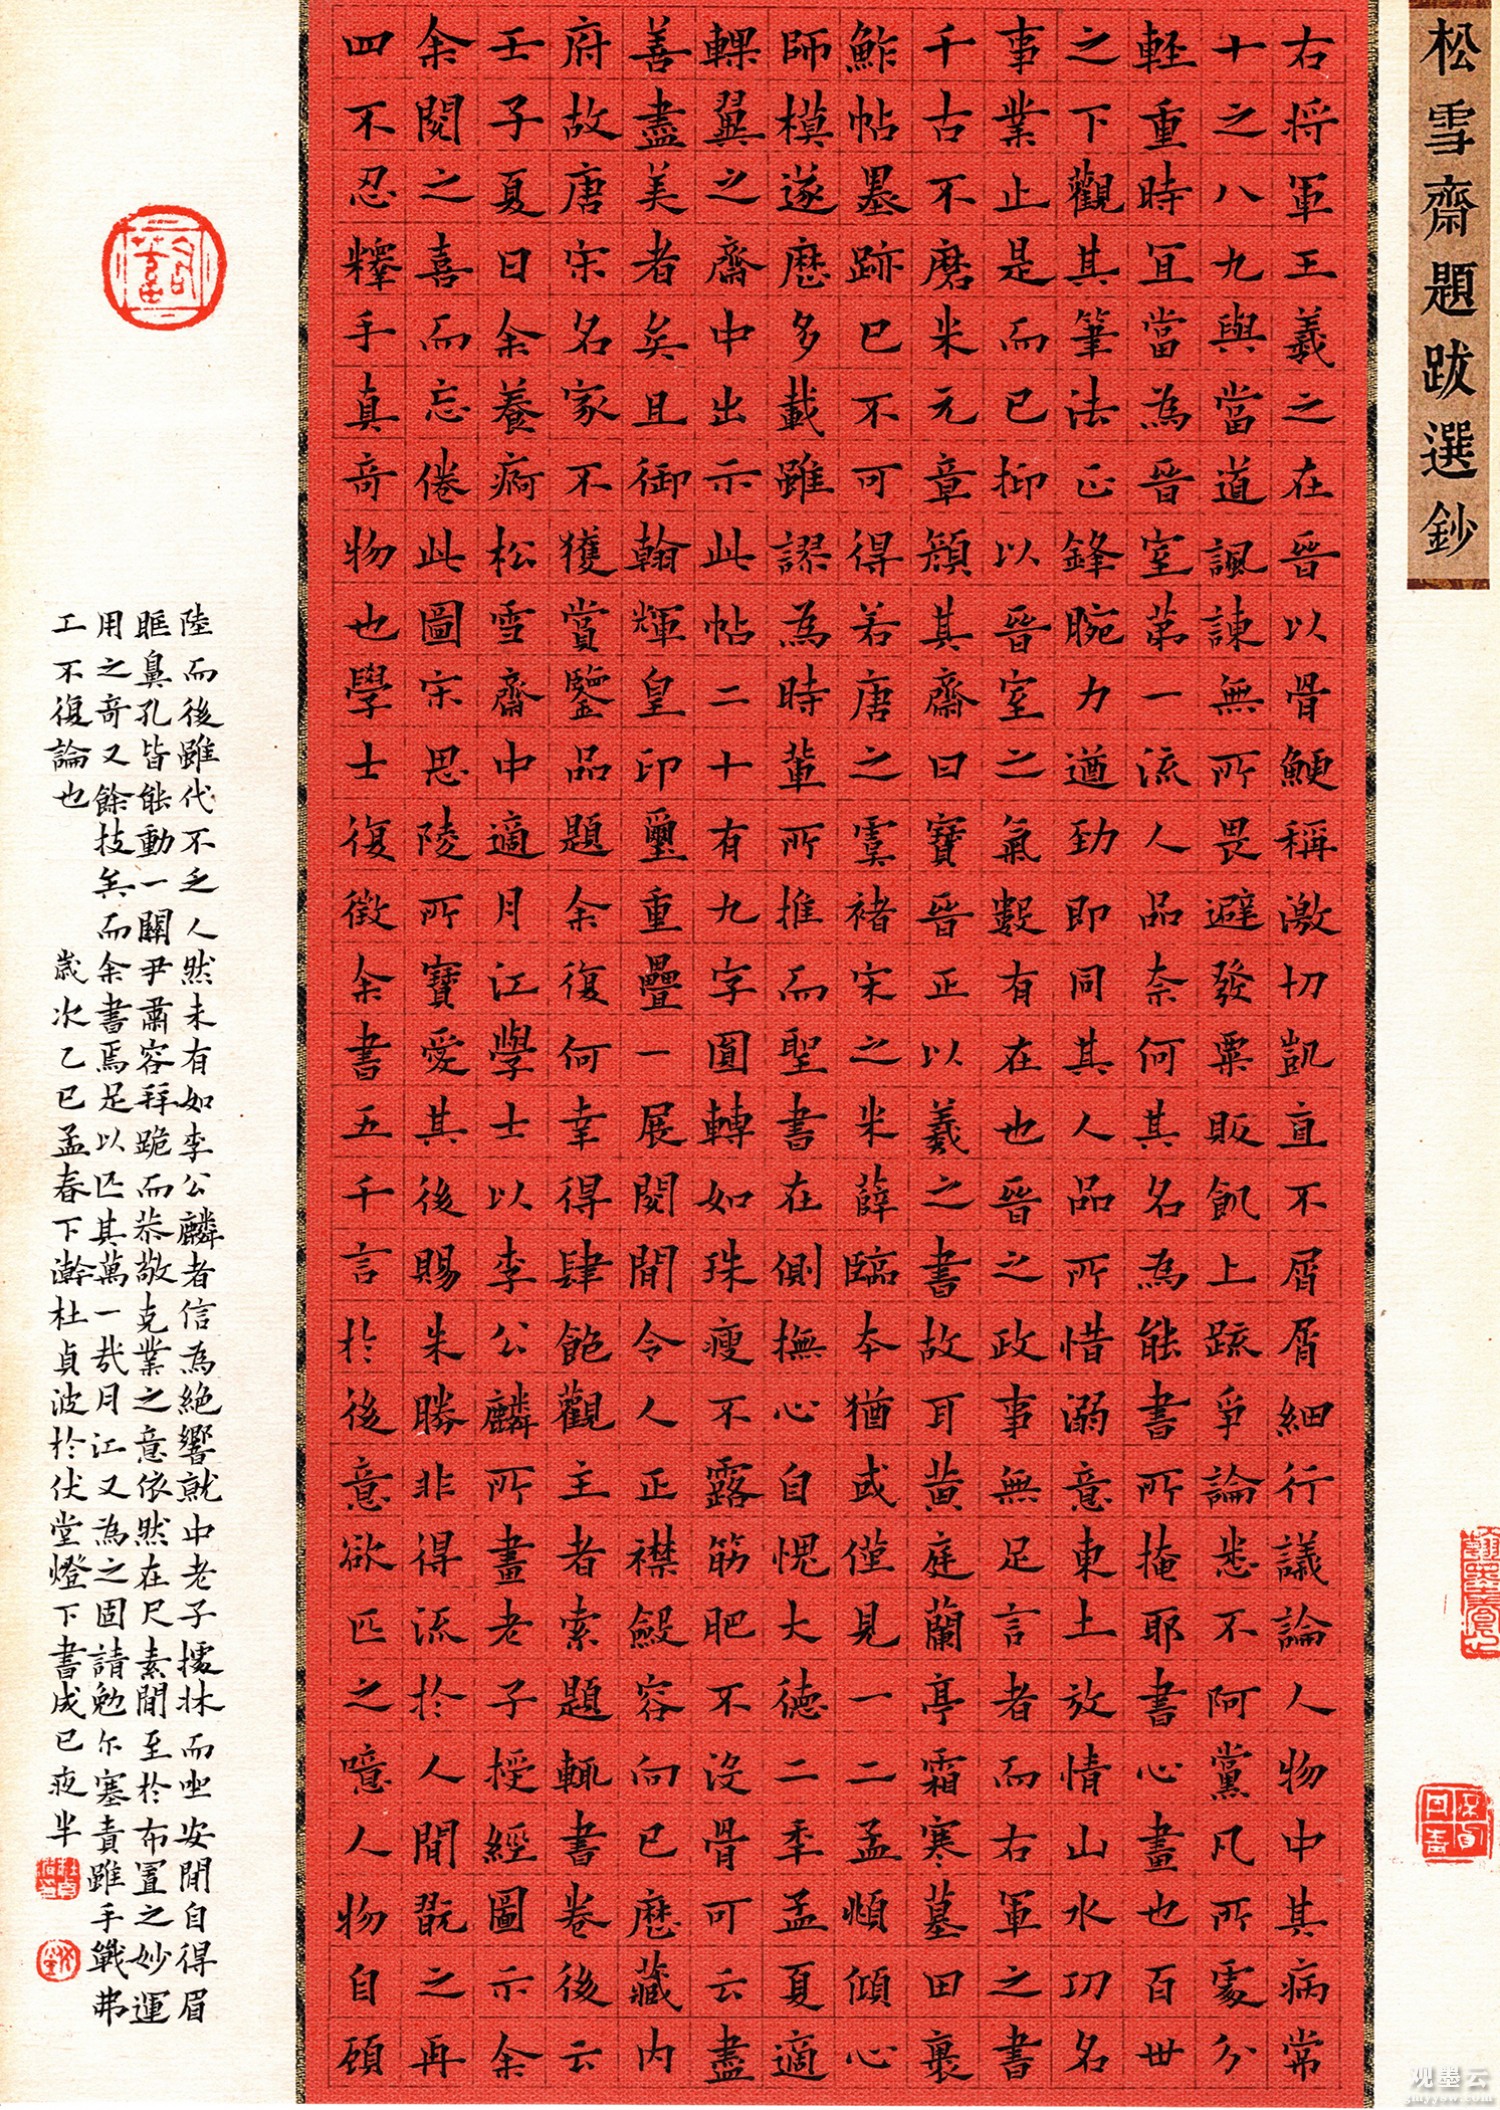 松雪齋題跋選鈔
右将軍王羲之在晉以骨鯁稱激切凱直不屑屑細行議論人物中其病常
十之八九與當道諷諫無所畏避發粟販飢上疏爭論悉不阿黨凡所處分
輕重時宜當為晉室第一流人品奈何其名為能書所掩耶書心畫也百世
之下觀其筆法正鋒腕力遒勁即同其人品所惜溺意東土放情山水功名
事業止是而已抑以晉室之氣數有在也晉之政事無足言者而右軍之書
千古不磨米元章顏其齋曰寶晉正以羲之書故耳黄庭蘭亭霜寒墓田裏
鮓帖墨跡已不可得若唐之虞褚宋之米薛臨本猶或僅見一二孟頫傾心
師模遂歷多載雖謬為時輩所推而聖書在側撫心自愧大德二季孟夏適
輠翼之齋中出示此帖二十有九字圓轉如珠瘦不露筋肥不沒骨可云盡
善盡美者矣且御翰輝皇印璽重疊一展閱間令人正襟斂容向已歷藏内
府故唐宋名家不獲賞鑒品題余復何幸得肆飽觀主者索題輒書卷後云
壬子夏日余養痾松雪齋中適月江學士以李公麟所畫老子授經圖示余
余閱之喜而忘倦此圖宋思陵所寶愛其後賜朱勝非得流於人間翫之再
四不忍釋手真竒物也學士復徵余書五千言於後意欲匹之噫人物自顧
陸而後雖代不乏人然未有如李公麟者信為絕響就中老子㩴牀而坐安閒自得眉
眶鼻孔皆能動一關尹肅容拜跪而恭敬克業之意依然在尺素間至於布置之妙運
用之竒又餘技矣而余書焉足以匹其萬一㢤月江又為之固請勉尓塞責雖手戰弗
工不復論也
歲次乙巳孟春下澣杜貞波於伏堂燈下書成已夜半
观墨云